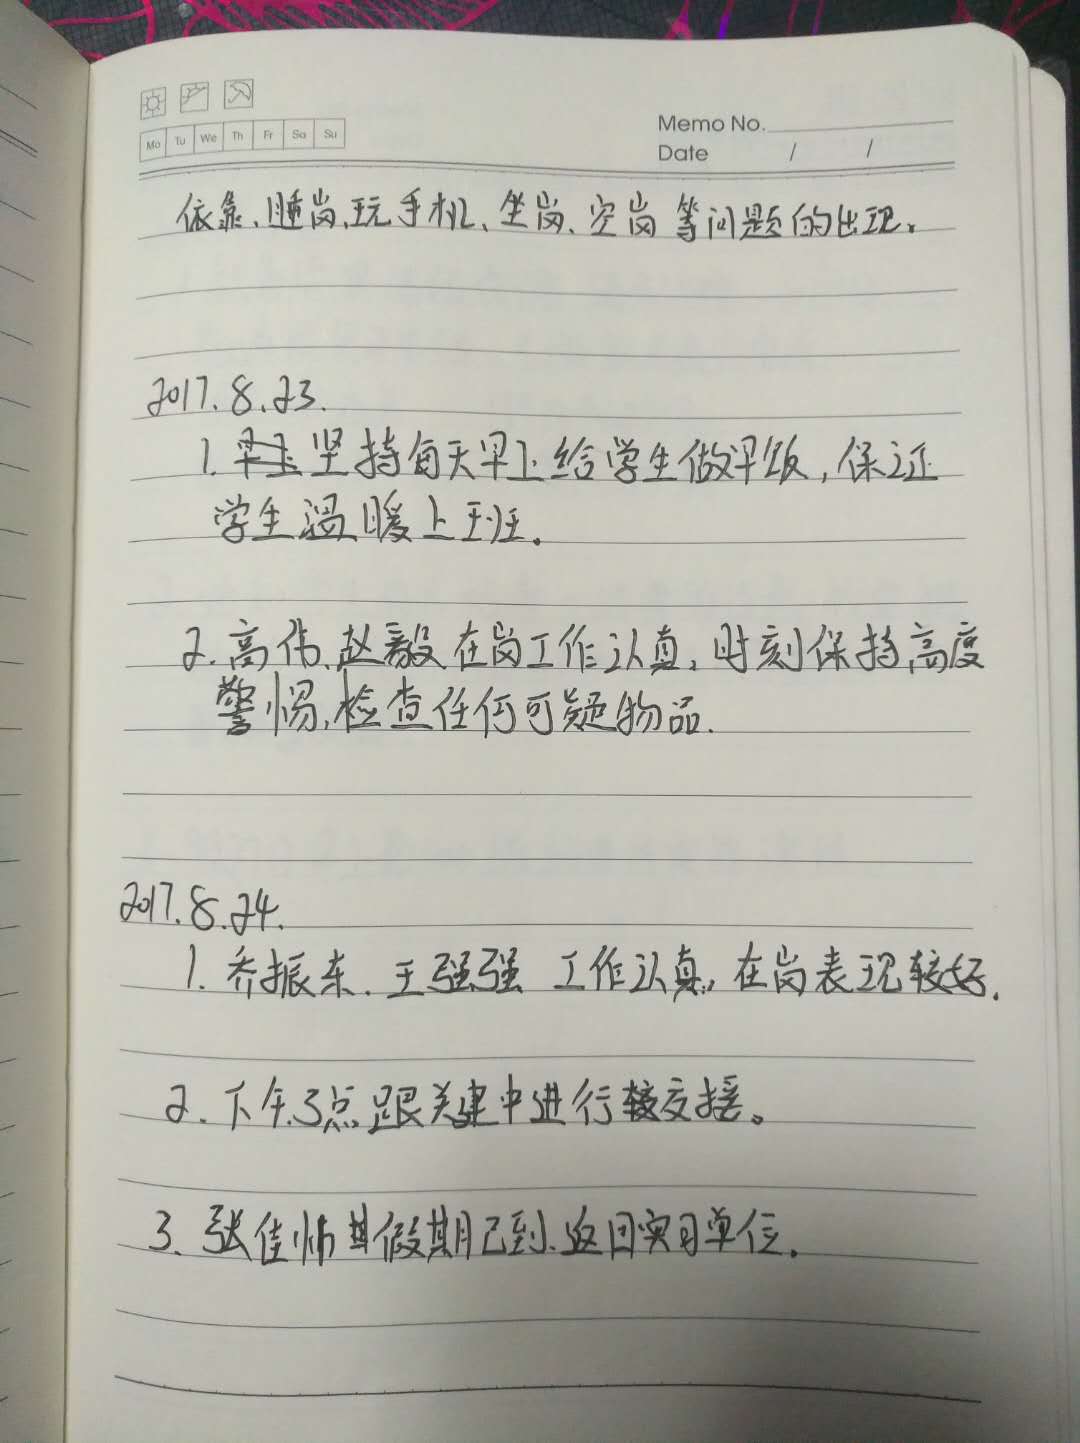 Mo Tu We Th Fr Sa Su
Memo No.
Date / /
依靠、睡岗、玩手机、坐岗、空岗等问题的出现。
2017.8.23.
1. 坚持每天早上给学生做早饭,保证
学生温暖上班。
2. 高伟、赵毅在岗工作认真,时刻保持高度
警惕,检查任何可疑物品.
2017.8.24.
1. 乔振东、王强强 工作认真,在岗表现较好.
2. 下午3点跟关建中进行交接。
3. 张佳帅其假期已到、返回实习单位.